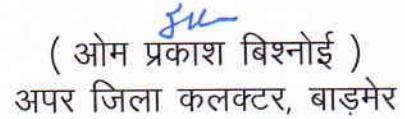 ( ओम प्रकाश बिश्नोई )
अपर जिला कलक्टर, बाड़मेर